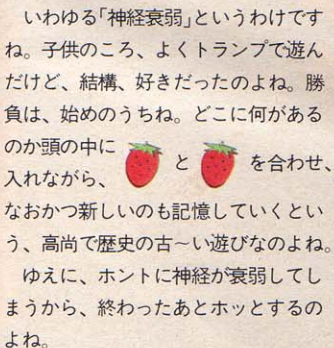 いわゆる「神経衰弱」というわけです
ね。子供のころ、よくトランプで遊ん
だけど、結構、好きだったのよね。勝
負は、始めのうちね。どこに何がある
のか頭の中に
入れながら、 と を合わせ、
なおかつ新しいのも記憶していくとい
う、高尚で歴史の古〜い遊びなのよね。
　ゆえに、ホントに神経が衰弱してし
まうから、終わったあとホッとするの
よね。